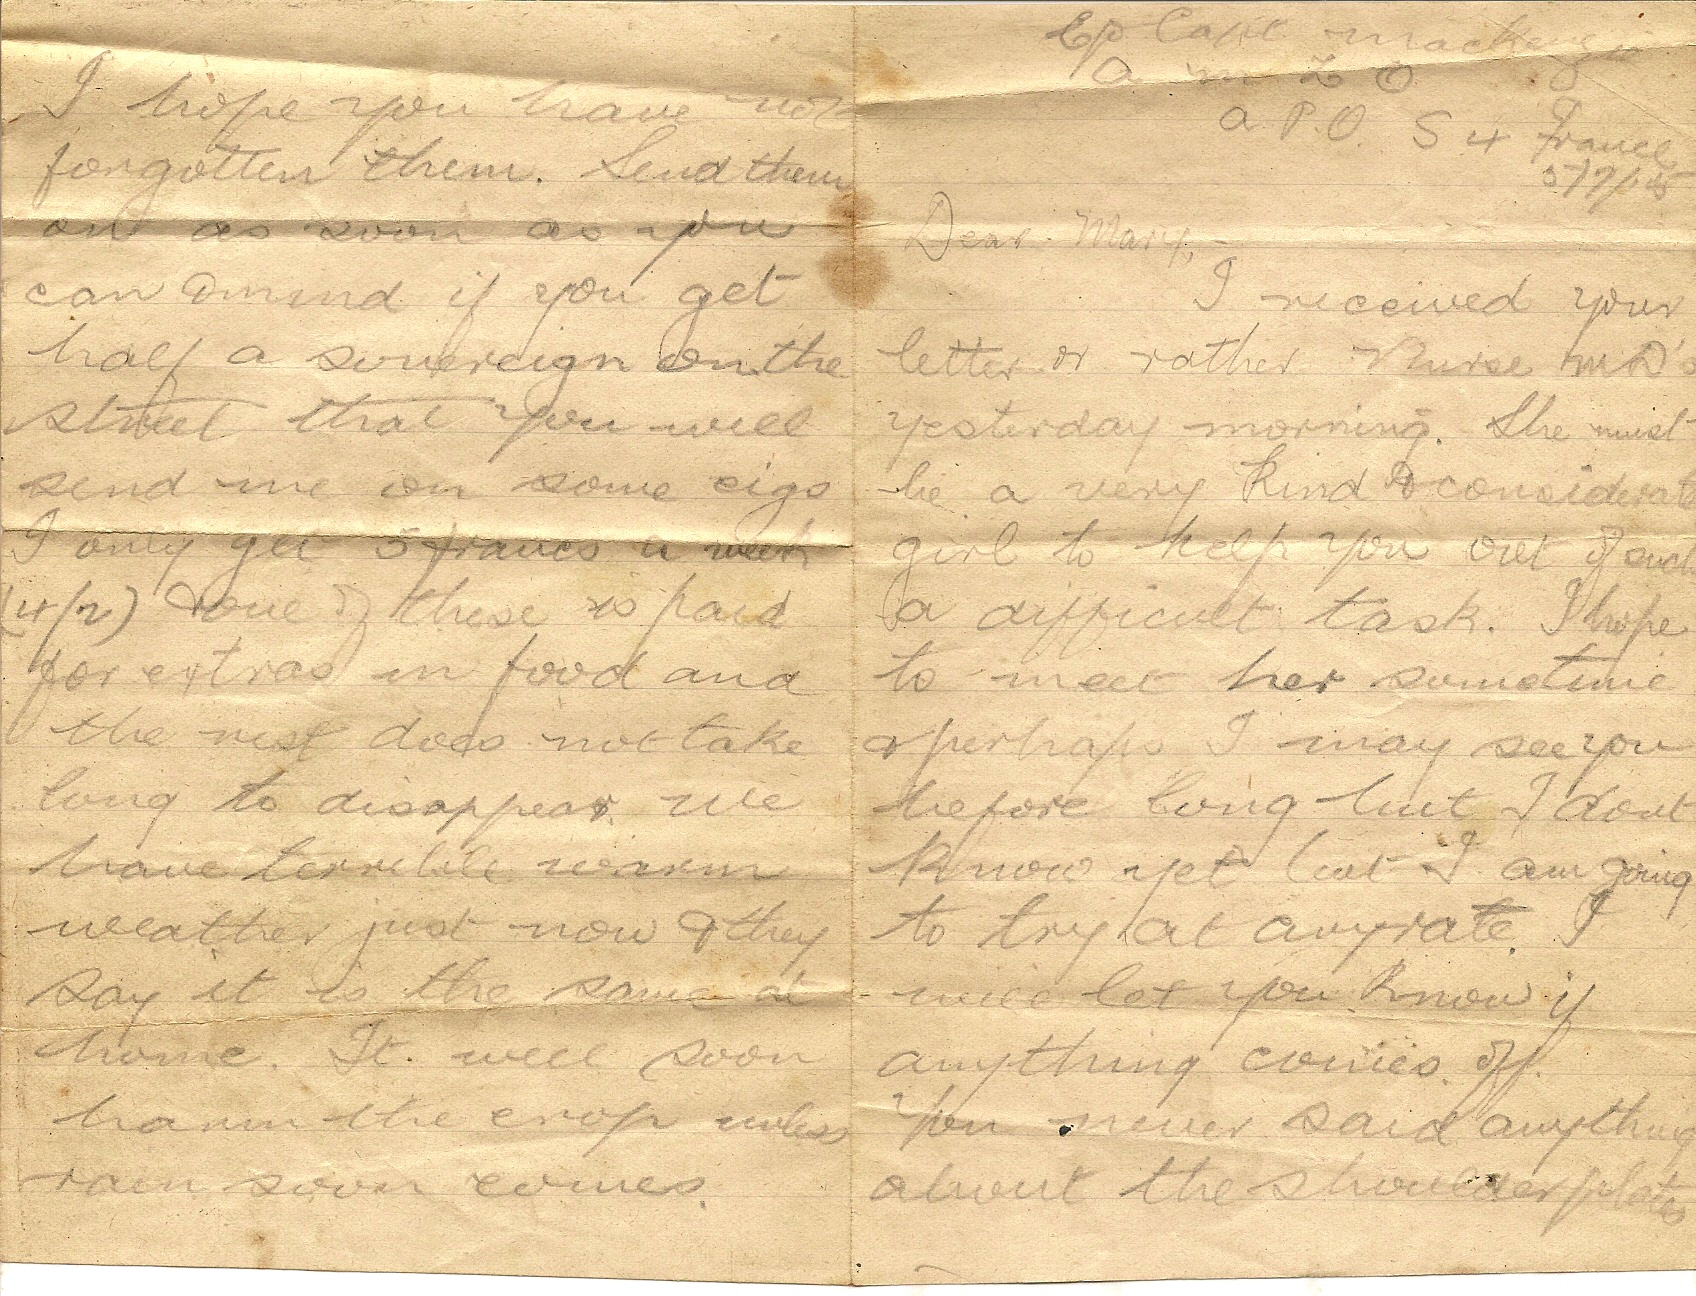 C/o Capt Mackenzie
A M L O
A.P.O. S 4 France
Dear Mary,-
I received your
letter or rather Nurse McD's
yesterday morning. She must
be a very kind & considerate
girl to help you out of such
a difficult task. I hope
to meet her sometime
& perhaps I may see you
before long but I dont
know yet but I am going
to try at anyrate. I
will let you know if
anything comes off.
You never said anything
about the shoulder plates
I hope you have not
forgotten them. Send them
on as soon as you
can & mind if you get
half a sovereign on the
street that you will
send me on some cigs
I only get 5 francs a week
(4/2) & one of these is paid
for extras in food and
the rest does not take
long to disappear. We
have terrible warm
weather just now & they
say it is the same at
home. It will soon
harm the crop unless
rain soon comes.